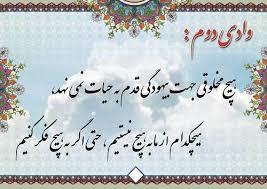 وادی دوم :
هیچ مخلوقی جهت بیهودگی قدم به حیات نمی نهد،
هیچکدام از ما به هیچ نیستیم ، حتی اگر به هیچ فکر کنیم